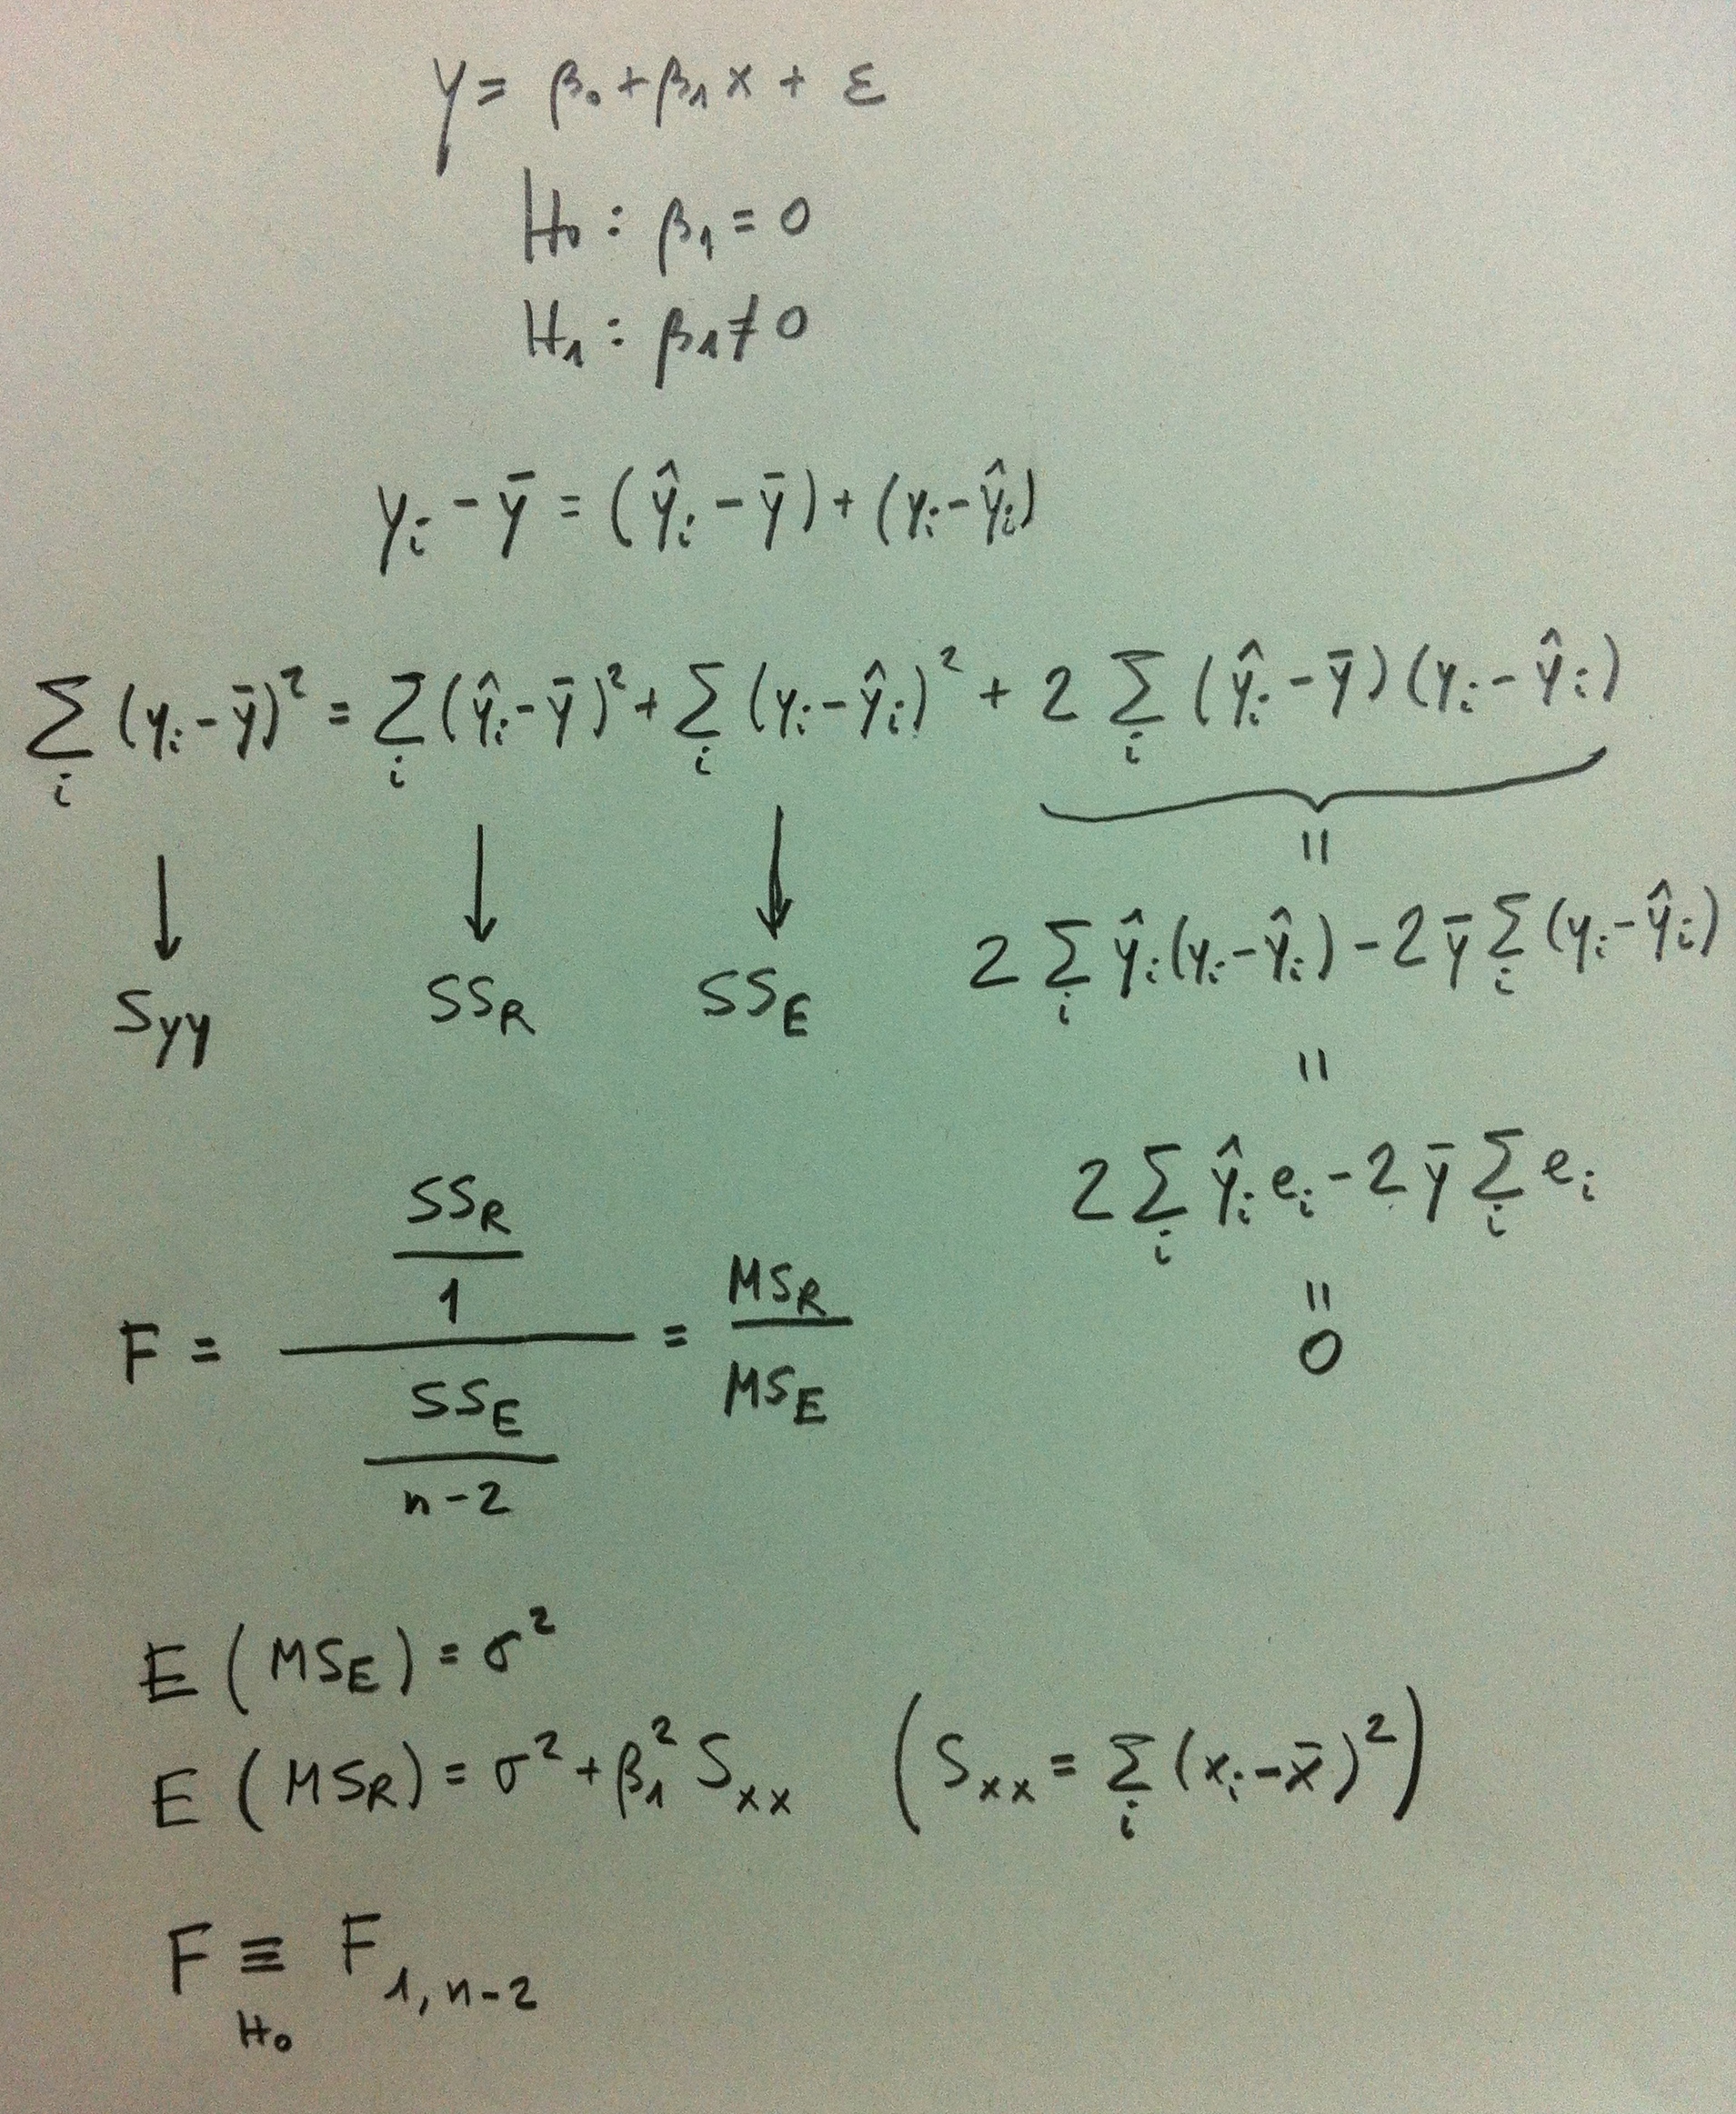 y = β₀ + β₁x + ε
H₀ : β₁ = 0
H₁ : β₁ ≠ 0
yᵢ - ȳ = (ŷᵢ - ȳ) + (yᵢ - ŷᵢ)
∑ᵢ (yᵢ - ȳ)² = ∑ᵢ (ŷᵢ - ȳ)² + ∑ᵢ (yᵢ - ŷᵢ)² + 2 ∑ᵢ (ŷᵢ - ȳ)(yᵢ - ŷᵢ)
↓ ↓ ↓ =
S_yy SS_R SS_E 2 ∑ᵢ ŷᵢ(yᵢ - ŷᵢ) - 2ȳ ∑ᵢ (yᵢ - ŷᵢ)
=
2 ∑ᵢ ŷᵢ eᵢ - 2ȳ ∑ᵢ eᵢ
=
0
F = (SS_R / 1) / (SS_E / (n-2)) = MS_R / MS_E
E(MS_E) = σ²
E(MS_R) = σ² + β₁² S_xx (S_xx = ∑ᵢ (xᵢ - x̄)²)
F ≡_H₀ F_1,n-2